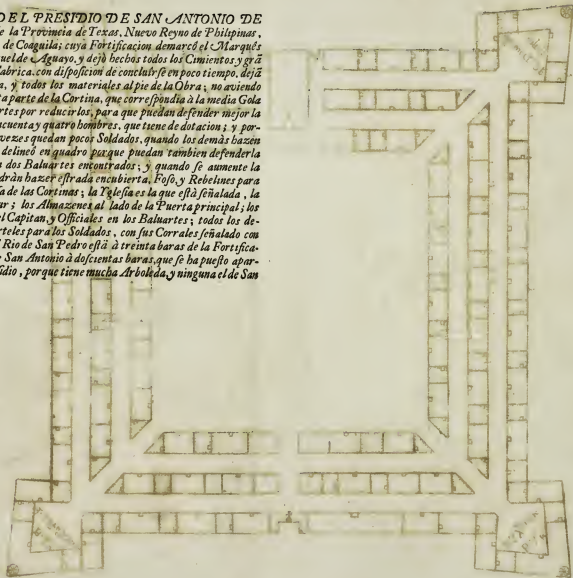 DEL PRESIDIO DE SAN ANTONIO DE
de la Provincia de Texas, Nuevo Reyno de Philipinas,
de Coaguila; cuya Fortificacion demarcó el Marqués
uel de Aguayo, y dejò hechos todos los Cimientos y grã
fabrica, con disposicion de concluirse en poco tiempo, dejã
a, y todos los materiales al pie de la Obra; no aviendo
ta parte de la Cortina, que correspondia à la media Gola
rtes por reducirlos, para que puedan defender mejor la
ncuenta y quatro hombres, que tiene de dotacion; y por-
vezes quedan pocos Soldados, quando los demàs hazen
delineò en quadro porque puedan tambien defenderla
n dos Baluartes encontrados; y quando se aumente la
drán hazer estrada encubierta, Foso, y Rebelines para
sa de las Cortinas; la Yglesia es la que està señalada, la
ur; los Almazenes al lado de la Puerta principal; los
el Capitan, y Officiales en los Baluartes; todos los de-
rteles para los Soldados, con sus Corrales señalado con
l Rio de San Pedro està à treinta baras de la Fortifica-
e San Antonio à doscientas baras, que se ha puesto apar-
idio, porque tiene mucha Arboleda, y ninguna el de San